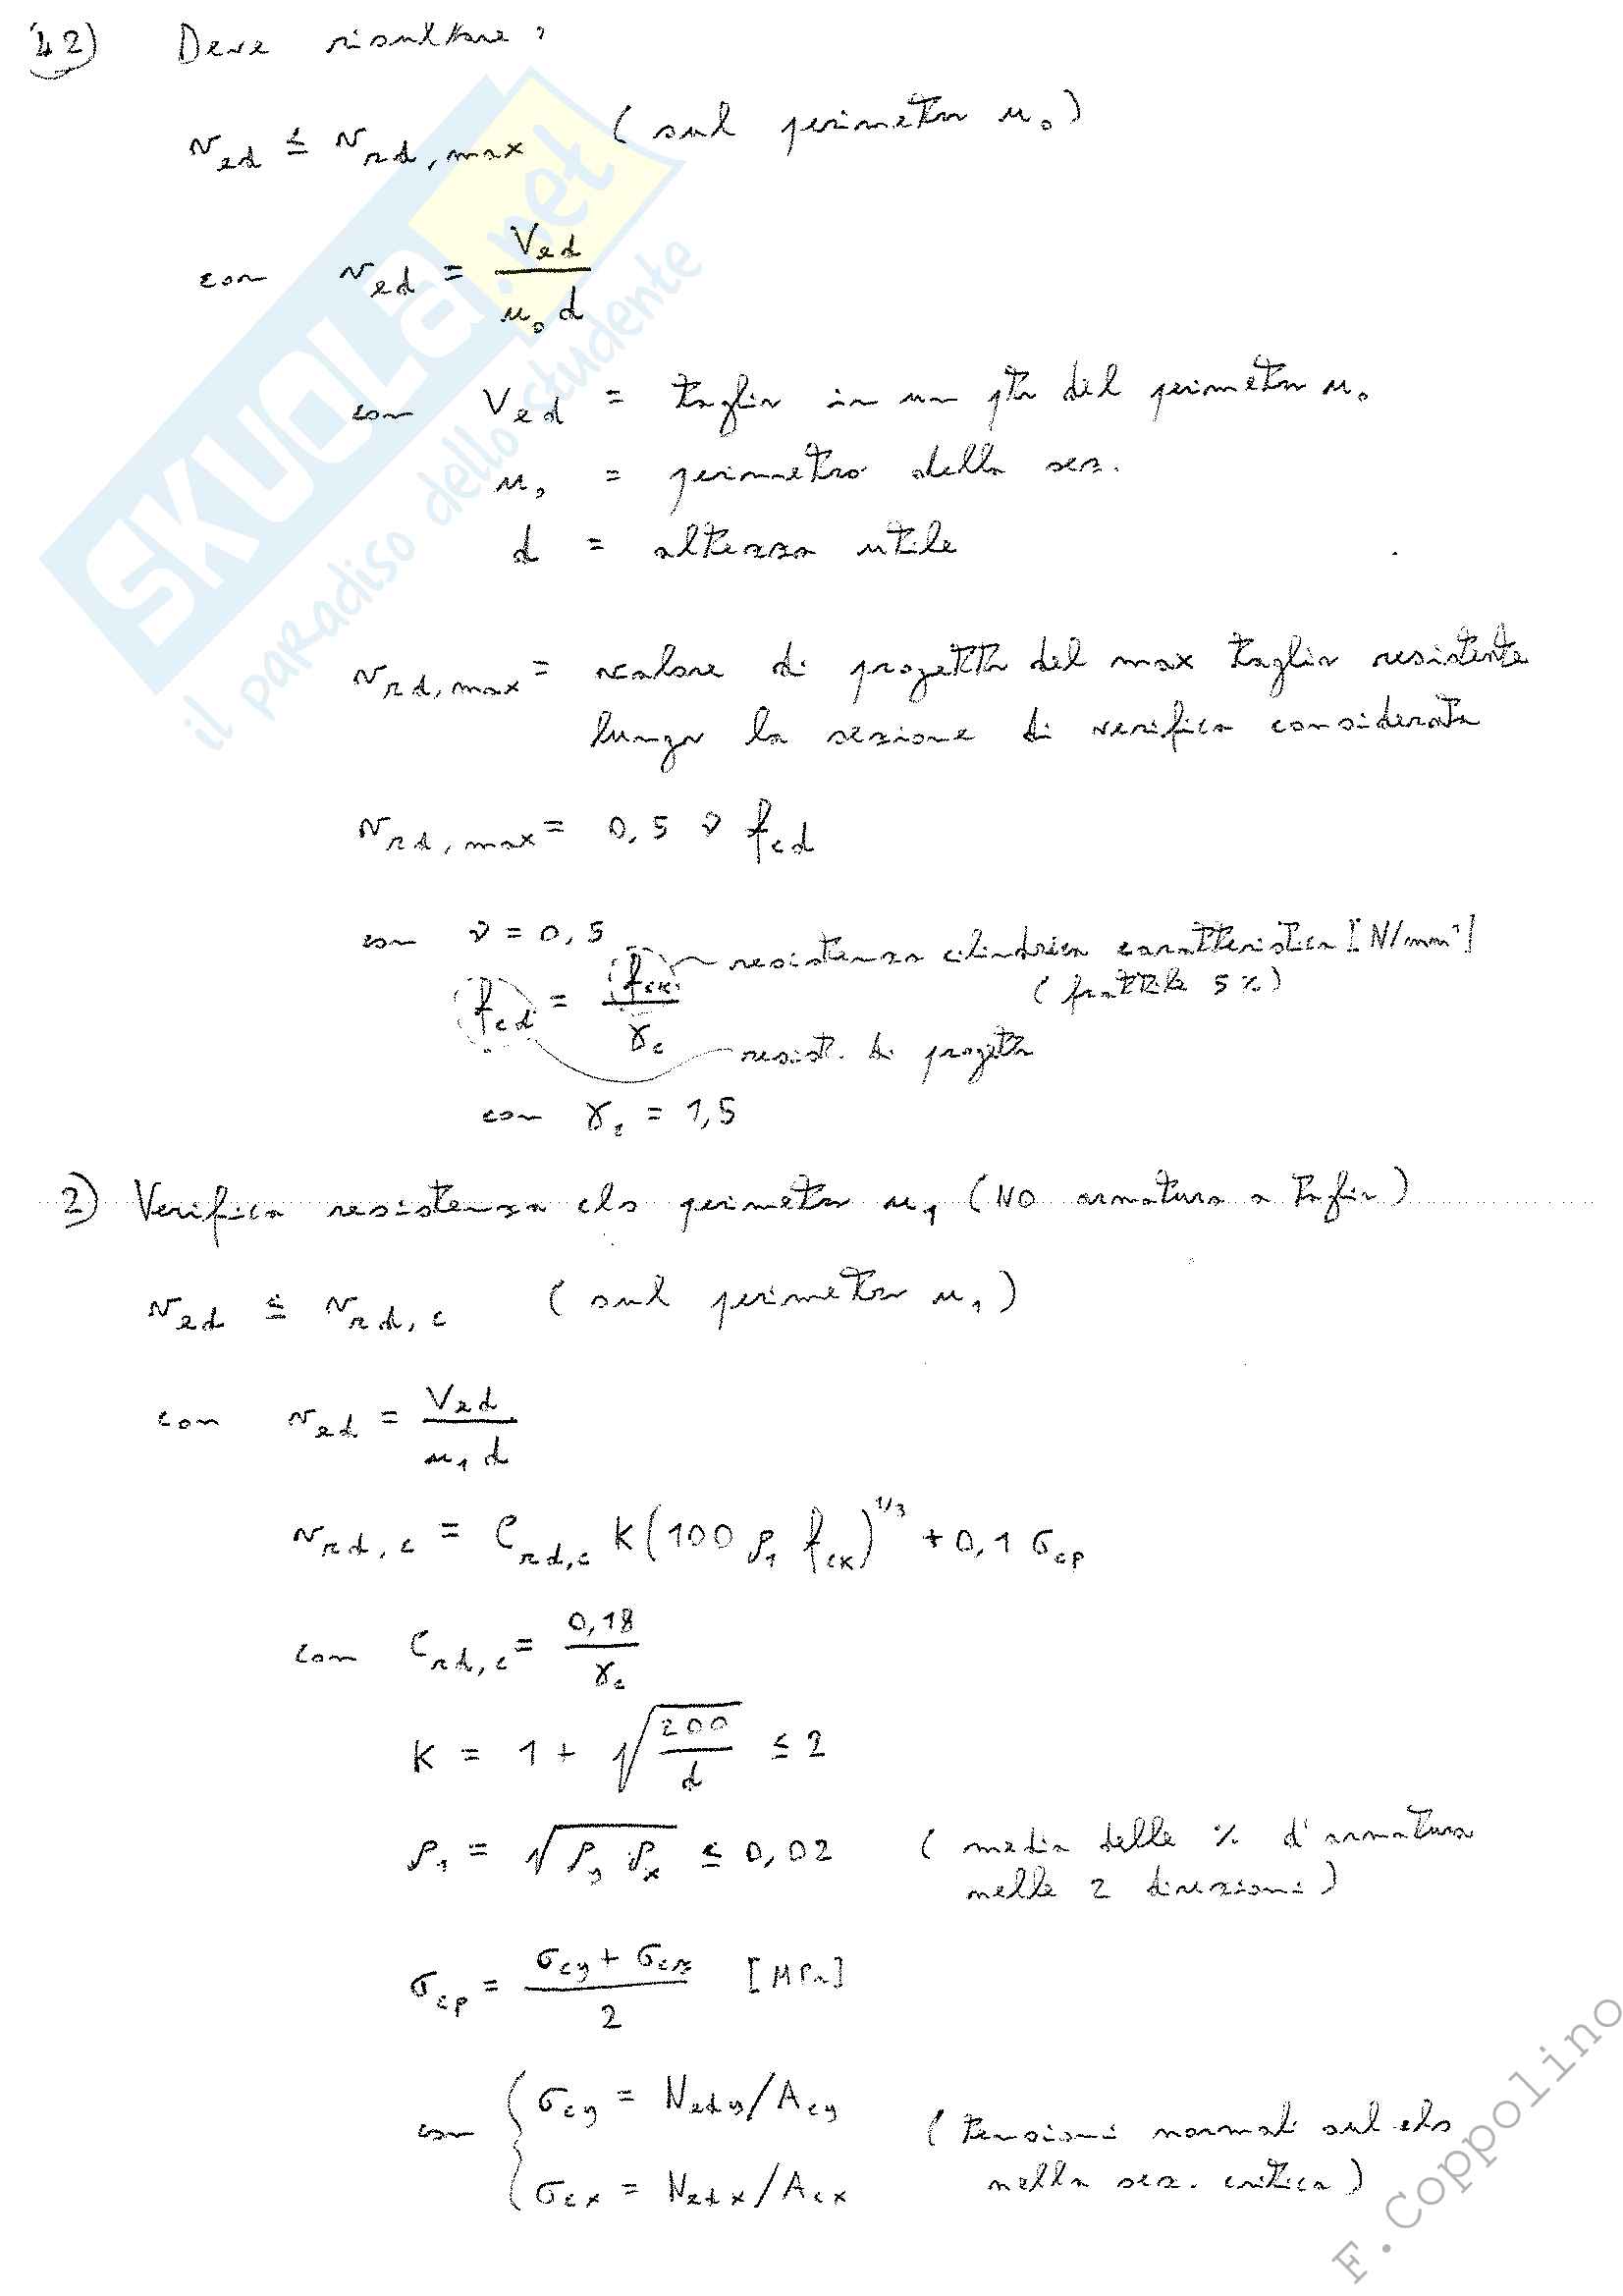 42) Deve risultare:
v_ed ≤ v_rd,max (sul perimetro u_0)
con v_ed = V_ed / (u_0 d)
con V_ed = taglio in un pto del perimetro u_0
u_0 = perimetro della sez.
d = altezza utile
v_rd,max = valore di progetto del max taglio resistente
lungo la sezione di verifica considerata
v_rd,max = 0,5 ν f_cd
con ν = 0,5
f_cd = f_ck / γ_c
resistenza cilindrica caratteristica [N/mm²]
(frattile 5%)
resist. di progetto
con γ_c = 1,5
2) Verifica resistenza cls perimetro u_1 (NO armatura a taglio)
v_ed ≤ v_rd,c (sul perimetro u_1)
con v_ed = V_ed / (u_1 d)
v_rd,c = C_rd,c K (100 ρ_1 f_ck)^1/3 + 0,1 σ_cp
con C_rd,c = 0,18 / γ_c
K = 1 + √(200/d) ≤ 2
ρ_1 = √(ρ_y ρ_x) ≤ 0,02 (media delle % d'armatura
nelle 2 direzioni)
σ_cp = (σ_cy + σ_cz) / 2 [MPa]
con { σ_cy = N_edy/A_cy
σ_cx = N_edx/A_cx
(tensioni normali sul cls
nella sez. critica)
SKUOLA.net
il paradiso dello studente
F.Coppolino